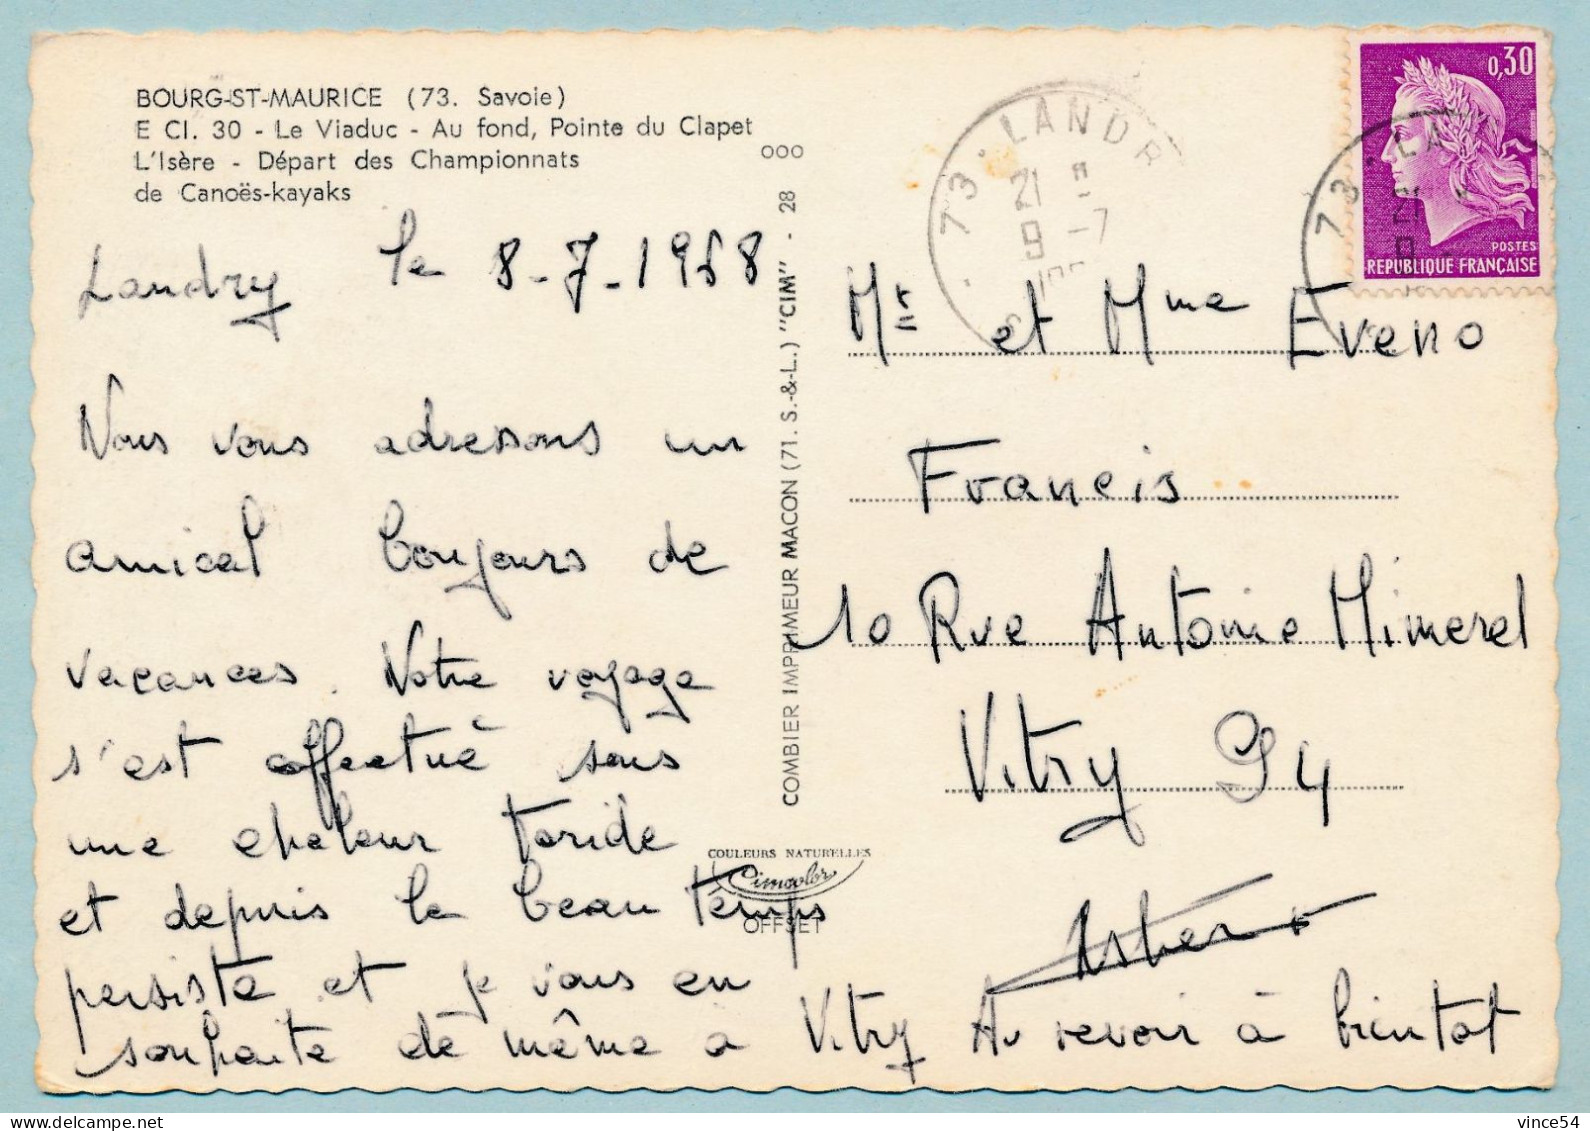 BOURG-ST-MAURICE (73. Savoie)
E CI. 30 - Le Viaduc - Au fond, Pointe du Clapet
L'Isère - Départ des Championnats
de Canoës-kayaks
ooo
Landry le 8-7-1968
Nous vous adressons un
amical bonjours de
vacances. Notre voyage
s'est effectué sous
une chaleur toride
et depuis le beau temps
persiste et je vous en
souhaite de même a Vitry Au revoir à bientot
COMBIER IMPRIMEUR MACON (71. S.-&-L.) "CIM" - 28
COULEURS NATURELLES
Cimcolor
OFFSET
73 LANDR
21
9 -7
0,30
POSTES
REPUBLIQUE FRANÇAISE
73 LA
21
9
Mr et Mme Eveno
Francis
10 Rue Antoine Mimerel
Vitry 94
vince54
delcampe.net